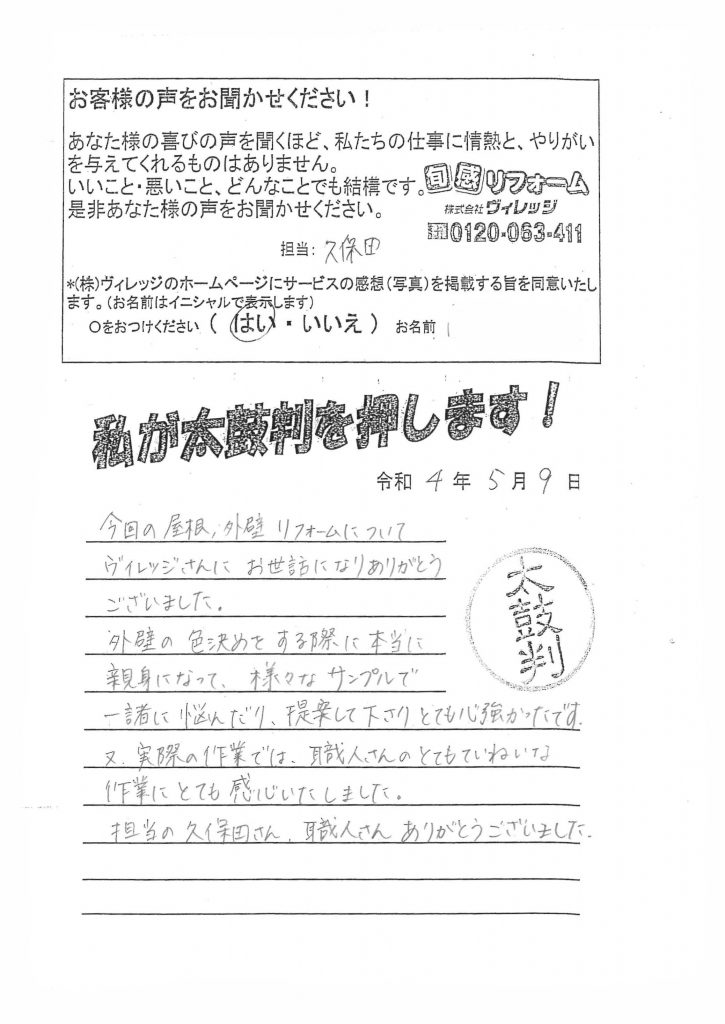 お客様の声をお聞かせください！
あなた様の喜びの声を聞くほど、私たちの仕事に情熱と、やりがい
を与えてくれるものはありません。
いいこと・悪いこと、どんなことでも結構です。
是非あなた様の声をお聞かせください。
旬感リフォーム
株式会社ヴィレッジ
0120-063-411
担当：久保田
*(株)ヴィレッジのホームページにサービスの感想（写真）を掲載する旨を同意いたし
ます。（お名前はイニシャルで表示します）
〇をおつけください（ はい ・ いいえ ） お名前
私が太鼓判を押します！
令和 4 年 5 月 9 日
今回の屋根，外壁 リフォームについて
ヴィレッジさんに お世話になりありがとう
ございました。
外壁の 色決めを する際に本当に
親身になって、 様々な サンプルで
一諸に 悩んだり、提案して下さり とても心強かったです.
又、実際の作業では、職人さんのとてもていねいな
作業にとても 感心いたしました。
担当の 久保田さん、職人さん ありがとうございました.
太鼓判